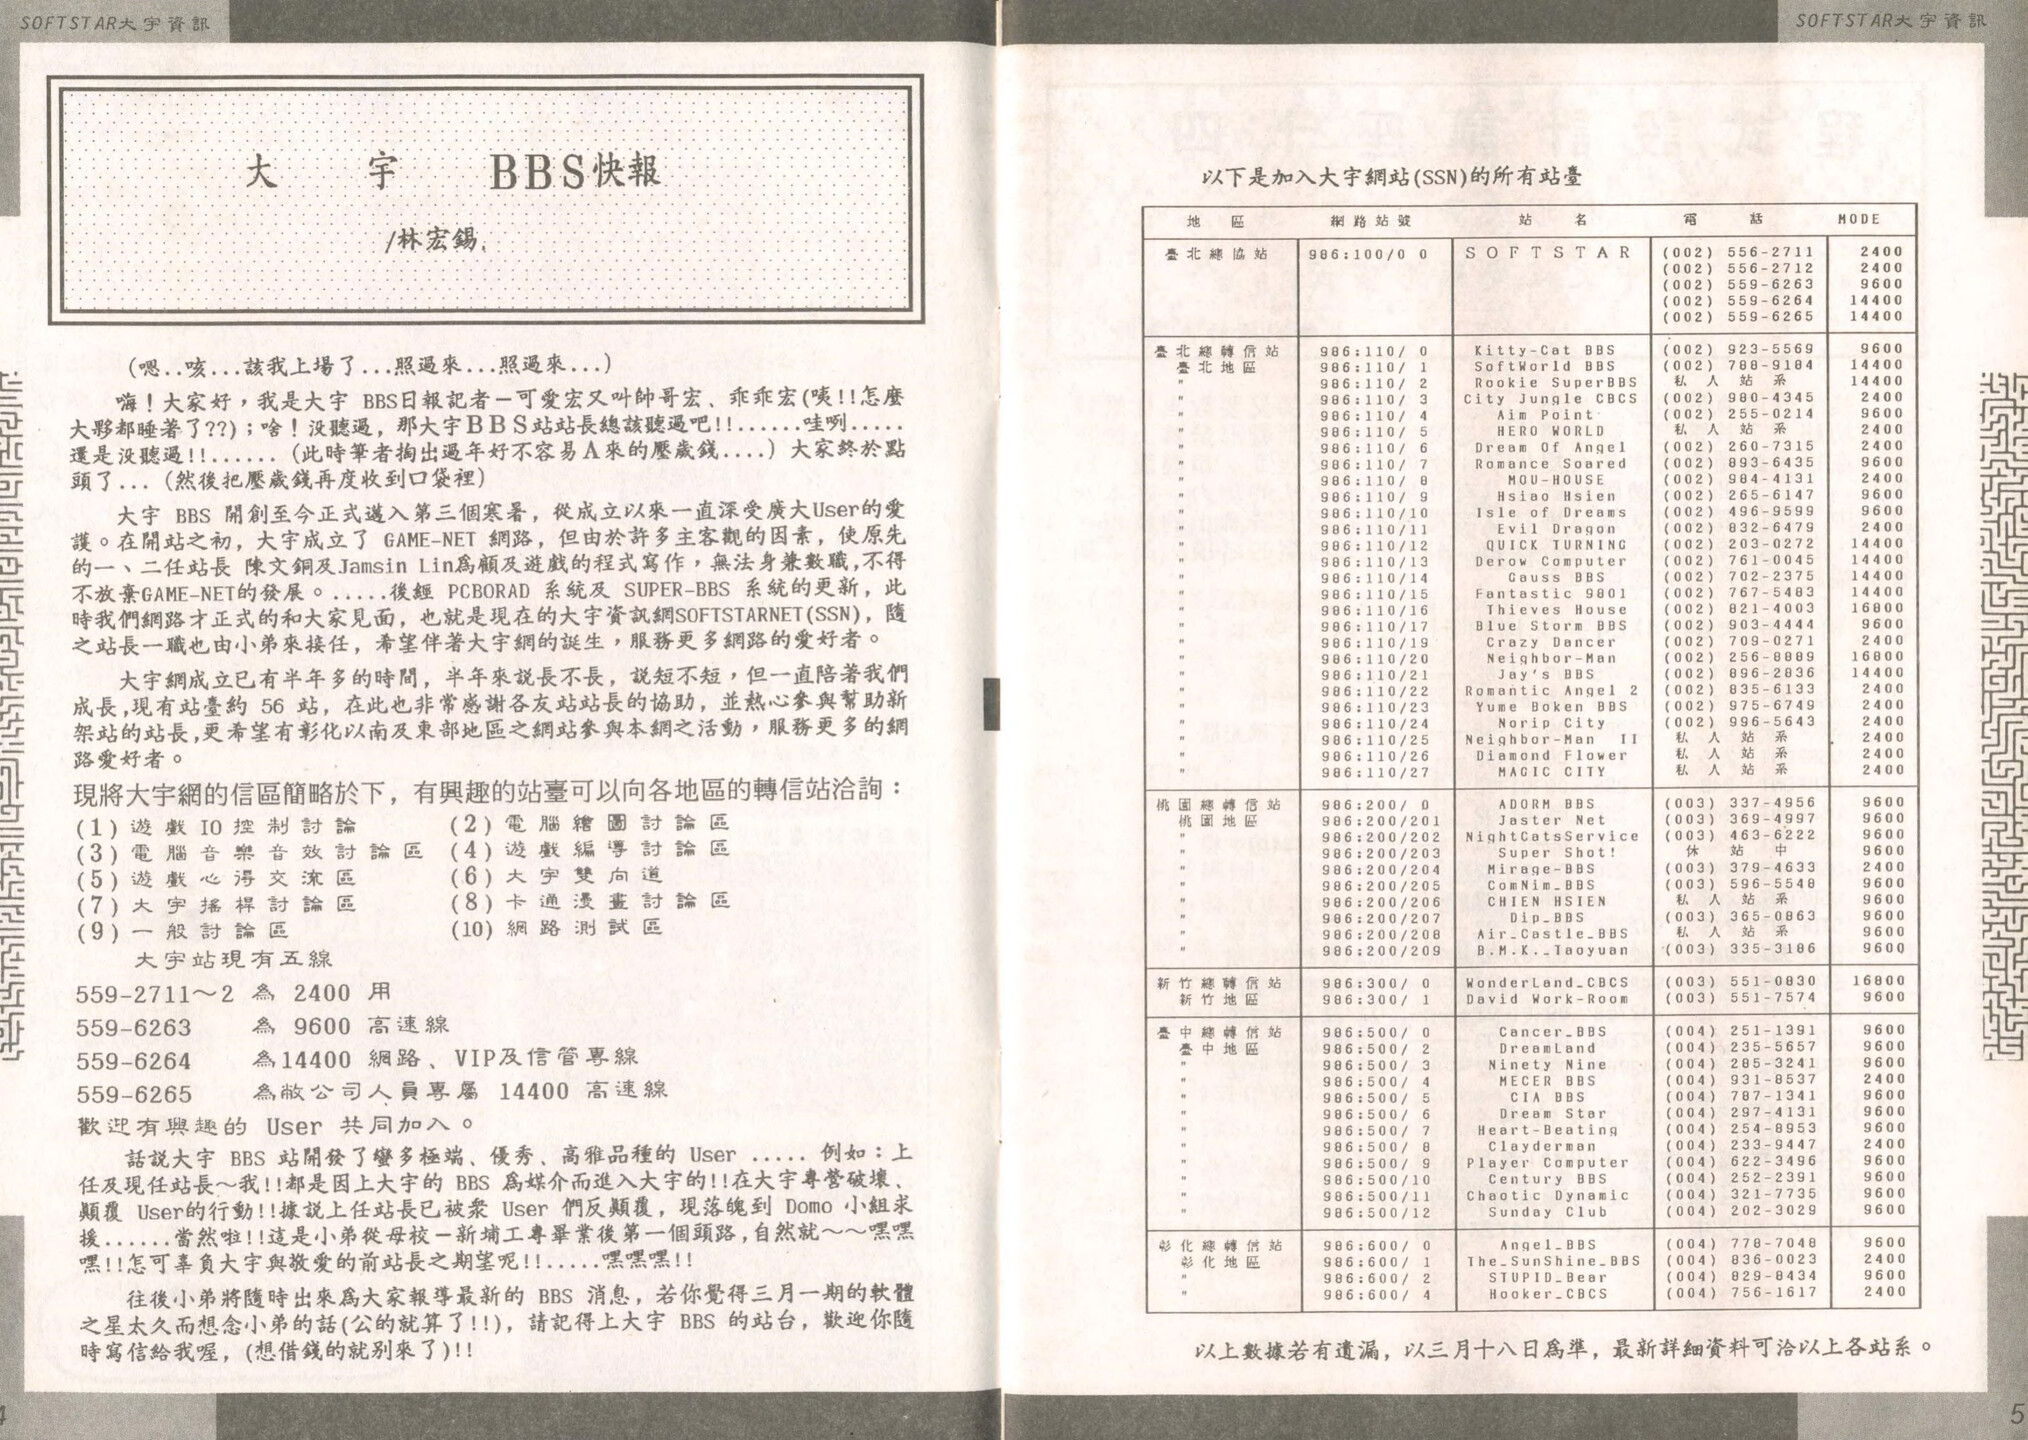 SOFTSTAR大宇資訊
大 宇 BBS快報
/林宏錫
(嗯..咳...該我上場了...照過來...照過來...)
嗨!大家好,我是大宇 BBS日報記者-可愛宏又叫帥哥宏、乖乖宏(咦!!怎麼
大夥都睡著了??);啥!沒聽過,那大宇BBS站站長總該聽過吧!!......哇咧.....
還是沒聽過!!......(此時筆者掏出過年好不容易A來的壓歲錢....)大家終於點
頭了...(然後把壓歲錢再度收到口袋裡)
大宇 BBS 開創至今正式邁入第三個寒暑,從成立以來一直深受廣大User的愛
護。在開站之初,大宇成立了 GAME-NET 網路,但由於許多主客觀的因素,使原先
的一、二任站長 陳文銅及Jamsin Lin為顧及遊戲的程式寫作,無法身兼數職,不得
不放棄GAME-NET的發展。.....後經 PCBORAD 系統及 SUPER-BBS 系統的更新,此
時我們網路才正式的和大家見面,也就是現在的大宇資訊網SOFTSTARNET(SSN),隨
之站長一職也由小弟來接任,希望伴著大宇網的誕生,服務更多網路的愛好者。
大宇網成立已有半年多的時間,半年來說長不長,說短不短,但一直陪著我們
成長,現有站臺約 56 站,在此也非常感謝各友站站長的協助,並熱心參與幫助新
架站的站長,更希望有彰化以南及東部地區之網站參與本網之活動,服務更多的網
路愛好者。
現將大宇網的信區簡略於下,有興趣的站臺可以向各地區的轉信站洽詢:
(1)遊戲IO控制討論 (2)電腦繪圖討論區
(3)電腦音樂音效討論區 (4)遊戲編導討論區
(5)遊戲心得交流區 (6)大宇雙向道
(7)大宇搖桿討論區 (8)卡通漫畫討論區
(9)一般討論區 (10)網路測試區
大宇站現有五線
559-2711~2 為 2400 用
559-6263 為 9600 高速線
559-6264 為14400 網路、VIP及信管專線
559-6265 為敝公司人員專屬 14400 高速線
歡迎有興趣的 User 共同加入。
話說大宇 BBS 站開發了蠻多極端、優秀、高雅品種的 User ..... 例如:上
任及現任站長~我!!都是因上大宇的 BBS 為媒介而進入大宇的!!在大宇專營破壞、
顛覆 User的行動!!據說上任站長已被眾 User 們反顛覆,現落魄到 Domo 小組求
援......當然啦!!這是小弟從母校-新埔工專畢業後第一個頭路,自然就~~嘿嘿
嘿!!怎可辜負大宇與敬愛的前站長之期望呢!!.....嘿嘿嘿!!
往後小弟將隨時出來為大家報導最新的 BBS 消息,若你覺得三月一期的軟體
之星太久而想念小弟的話(公的就算了!!),請記得上大宇 BBS 的站台,歡迎你隨
時寫信給我喔,(想借錢的就別來了)!!
4
SOFTSTAR大宇資訊
以下是加入大宇網站(SSN)的所有站臺
地 區 網路站號 站 名 電 話 MODE
臺北總協站 986:100/0 0 SOFTSTAR (002) 556-2711 2400
(002) 556-2712 2400
(002) 559-6263 9600
(002) 559-6264 14400
(002) 559-6265 14400
臺北總轉信站 986:110/ 0 Kitty-Cat BBS (002) 923-5569 9600
臺北地區 986:110/ 1 SoftWorld BBS (002) 788-9184 14400
" 986:110/ 2 Rookie SuperBBS 私人站系 14400
" 986:110/ 3 City Jungle CBCS (002) 980-4345 2400
" 986:110/ 4 Aim Point (002) 255-0214 9600
" 986:110/ 5 HERO WORLD 私人站系 14400
" 986:110/ 6 Dream Of Angel (002) 260-7315 2400
" 986:110/ 7 Romance Soared (002) 893-6435 9600
" 986:110/ 8 MOU-HOUSE (002) 984-4131 2400
" 986:110/ 9 Hsiao Hsien (002) 265-6147 9600
" 986:110/10 Isle of Dreams (002) 496-9599 9600
" 986:110/11 Evil Dragon (002) 832-6479 2400
" 986:110/12 QUICK TURNING (002) 203-0272 14400
" 986:110/13 Derow Computer (002) 761-0045 14400
" 986:110/14 Gauss BBS (002) 702-2375 14400
" 986:110/15 Fantastic 9801 (002) 767-5483 14400
" 986:110/16 Thieves House (002) 821-4003 16800
" 986:110/17 Blue Storm BBS (002) 903-4444 9600
" 986:110/19 Crazy Dancer (002) 709-0271 2400
" 986:110/20 Neighbor-Man (002) 256-8889 16800
" 986:110/21 Jay's BBS (002) 896-2836 14400
" 986:110/22 Romantic Angel 2 (002) 835-6133 2400
" 986:110/23 Yume Boken BBS (002) 975-6749 2400
" 986:110/24 Norip City (002) 996-5643 2400
" 986:110/25 Neighbor-Man II 私人站系 2400
" 986:110/26 Diamond Flower 私人站系 2400
" 986:110/27 MAGIC CITY 私人站系 2400
桃園總轉信站 986:200/ 0 ADORM BBS (003) 337-4956 9600
桃園地區 986:200/201 Jaster Net (003) 369-4997 9600
" 986:200/202 NightCatsService (003) 463-6222 9600
" 986:200/203 Super Shot! 休站中 9600
" 986:200/204 Mirage-BBS (003) 379-4633 2400
" 986:200/205 ComNim_BBS (003) 596-5548 9600
" 986:200/206 CHIEN HSIEN 私人站系 9600
" 986:200/207 Dip_BBS (003) 365-0863 9600
" 986:200/208 Air_Castle_BBS 私人站系 9600
" 986:200/209 B.M.K._Taoyuan (003) 335-3186 9600
新竹總轉信站 986:300/ 0 WonderLand_CBCS (003) 551-0830 16800
新竹地區 986:300/ 1 David Work-Room (003) 551-7574 9600
臺中總轉信站 986:500/ 0 Cancer_BBS (004) 251-1391 9600
臺中地區 986:500/ 2 DreamLand (004) 235-5657 9600
" 986:500/ 3 Ninety Nine (004) 285-3241 9600
" 986:500/ 4 MECER BBS (004) 931-8537 2400
" 986:500/ 5 CIA BBS (004) 787-1341 9600
" 986:500/ 6 Dream Star (004) 297-4131 9600
" 986:500/ 7 Heart-Beating (004) 254-8953 9600
" 986:500/ 8 Clayderman (004) 233-9447 2400
" 986:500/ 9 Player Computer (004) 622-3496 9600
" 986:500/10 Century BBS (004) 252-2391 9600
" 986:500/11 Chaotic Dynamic (004) 321-7735 9600
" 986:500/12 Sunday Club (004) 202-3029 9600
彰化總轉信站 986:600/ 0 Angel_BBS (004) 778-7048 9600
彰化地區 986:600/ 1 The_SunShine_BBS (004) 836-0023 2400
" 986:600/ 2 STUPID_Bear (004) 829-8434 9600
" 986:600/ 4 Hooker_CBCS (004) 756-1617 2400
以上數據若有遺漏,以三月十八日為準,最新詳細資料可洽以上各站系。
5